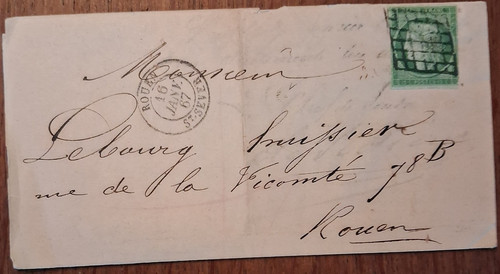 ROUEN
ST-SEVER
16
JANV.
67
Monsieur
Lebourg huissier
rue de la Vicomté 78B
Rouen